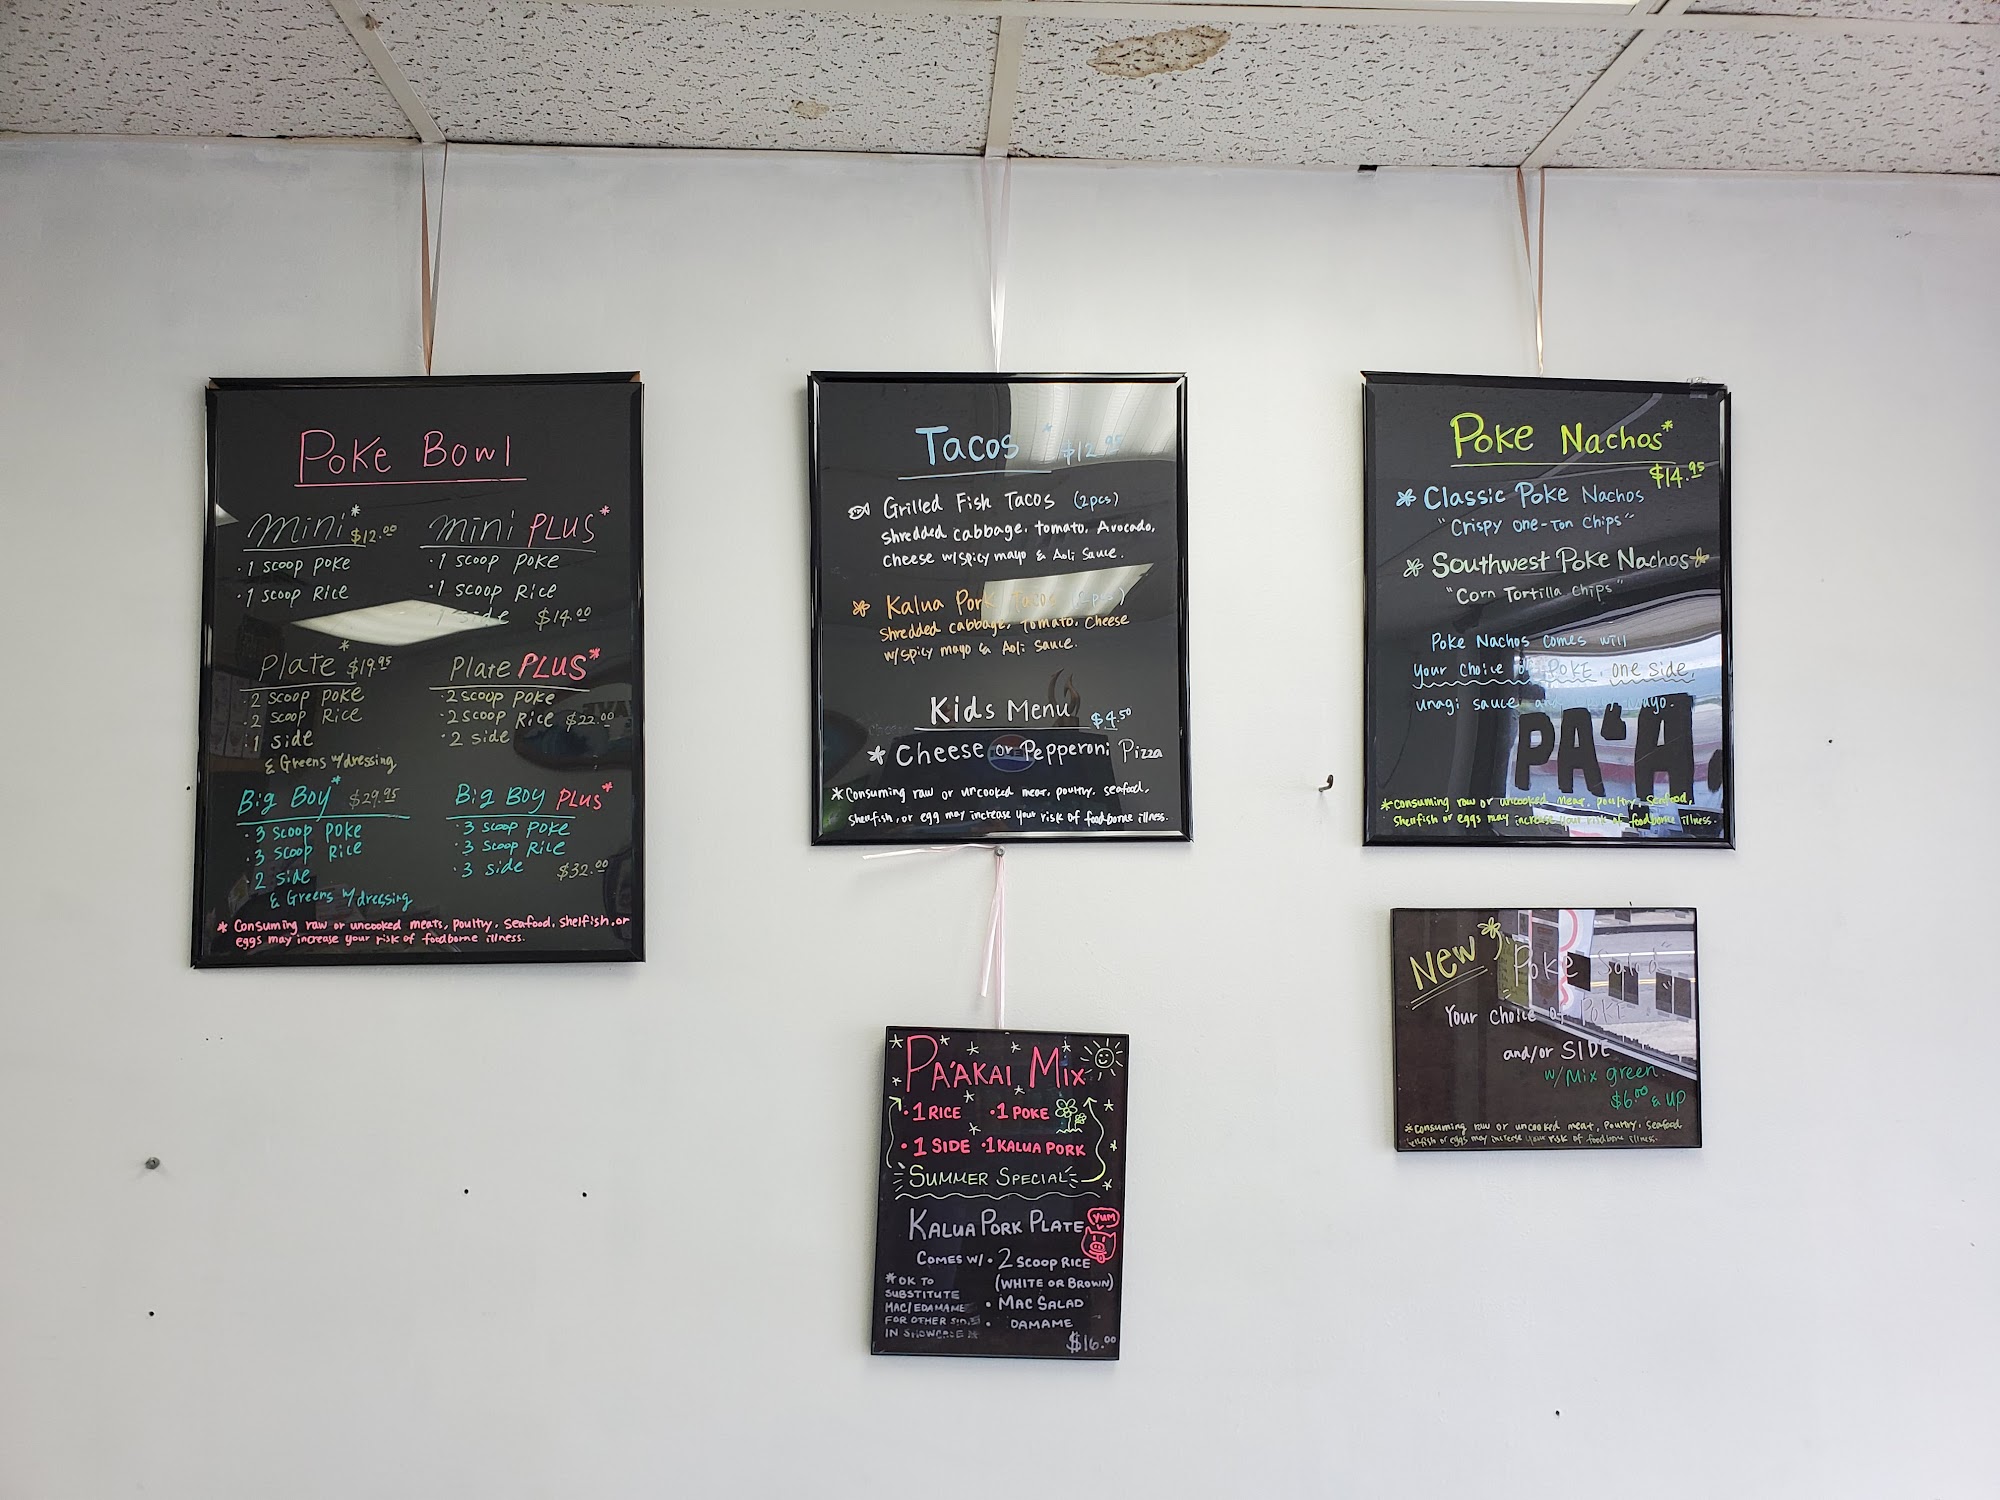 Poke Bowl
Mini* $12.00
· 1 scoop poke
· 1 scoop Rice
Mini PLUS*
· 1 scoop poke
· 1 scoop Rice
· 1 side $14.00
Plate* $19.95
· 2 scoop poke
· 2 scoop Rice
· 1 side
& Greens w/dressing
Plate PLUS*
· 2 scoop poke
· 2 scoop Rice $22.00
· 2 side
Big Boy* $29.95
· 3 scoop poke
· 3 scoop Rice
· 2 side
& Greens w/dressing
Big Boy PLUS*
· 3 scoop poke
· 3 scoop Rice
· 3 side $32.00
* Consuming raw or uncooked meats, poultry, seafood, shelfish, or
eggs may increase your risk of foodborne illness.
Tacos* $12.95
Grilled Fish Tacos (2pcs)
shredded cabbage, tomato, Avocado,
Cheese w/spicy mayo & Aoli Sauce.
Kalua Pork Tacos (2pcs)
shredded cabbage, Tomato, Cheese
w/spicy mayo & Aoli Sauce.
Kids Menu $4.50
* Cheese or Pepperoni Pizza
* Consuming raw or uncooked meat, poultry, seafood,
shelfish, or egg may increase your risk of foodborne illness.
Poke Nachos*
$14.95
Classic Poke Nachos
"Crispy One-Ton Chips"
Southwest Poke Nachos
"Corn Tortilla Chips"
Poke Nachos comes will
your choice of POKE, one side,
unagi sauce and mayo.
PA'A
* Consuming raw or uncooked meat, poultry, seafood,
shelfish or eggs may increase your risk of foodborne illness.
New* Poke Salad
Your choice of POKE
and/or SIDE
w/Mix green
$6.00 & UP
* Consuming raw or uncooked meat, poultry, seafood
shelfish or eggs may increase your risk of foodborne illness.
PA'AKAI MIX
· 1 RICE · 1 POKE
· 1 SIDE · 1 KALUA PORK
SUMMER SPECIAL
KALUA PORK PLATE
YUM
COMES W/ · 2 SCOOP RICE
(WHITE OR BROWN)
· MAC SALAD
· DAMAME
* OK TO
SUBSTITUTE
MAC/EDAMAME
FOR OTHER SIDES
IN SHOWCASE *
$16.00